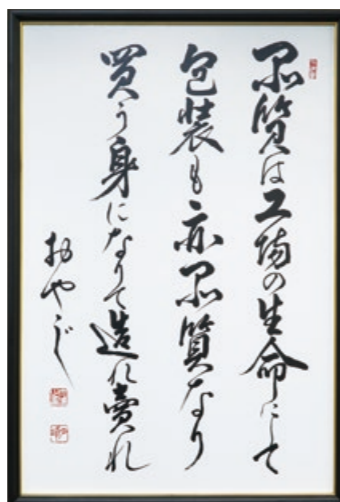 品質は工場の生命にして
包装も亦品質なり
買う身になりて造れ賣れ
おやじ